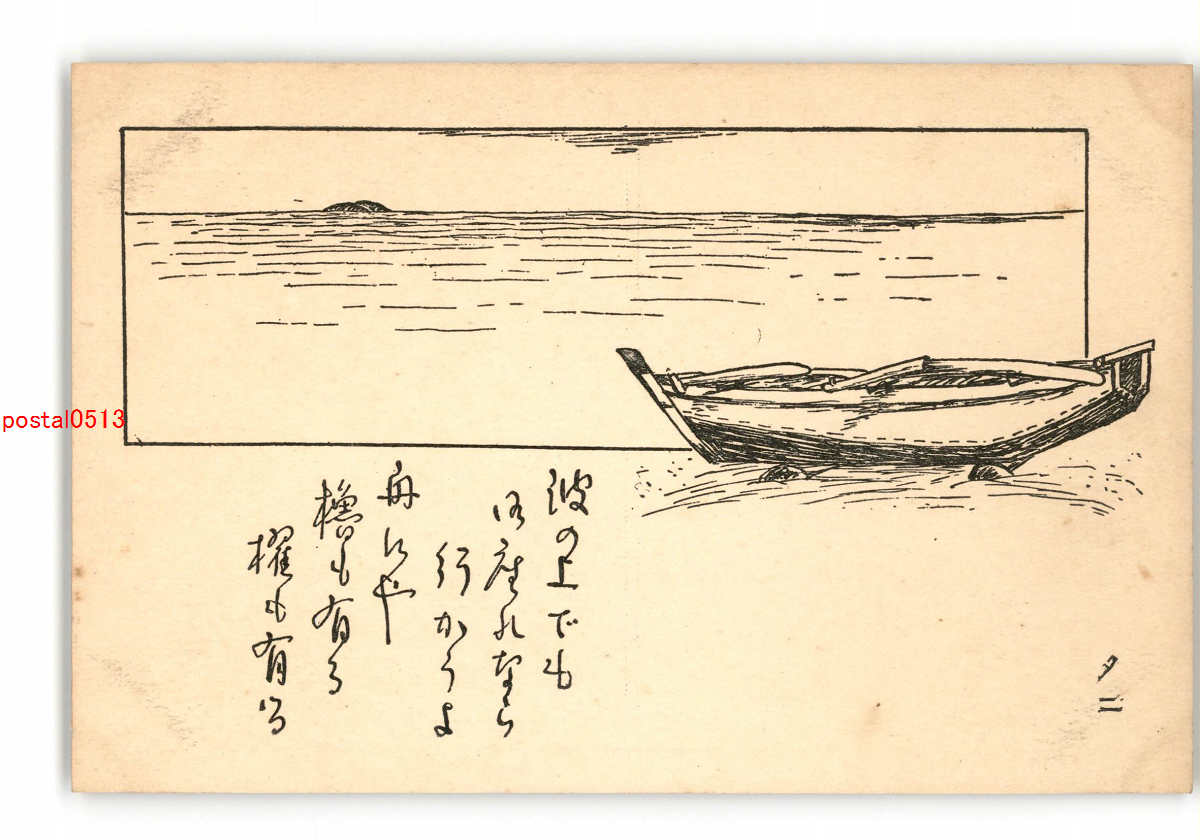 波の上でも
御座れなら
行かうよ
舟にや
櫓も有る
櫂も有る
タ二
postal0513